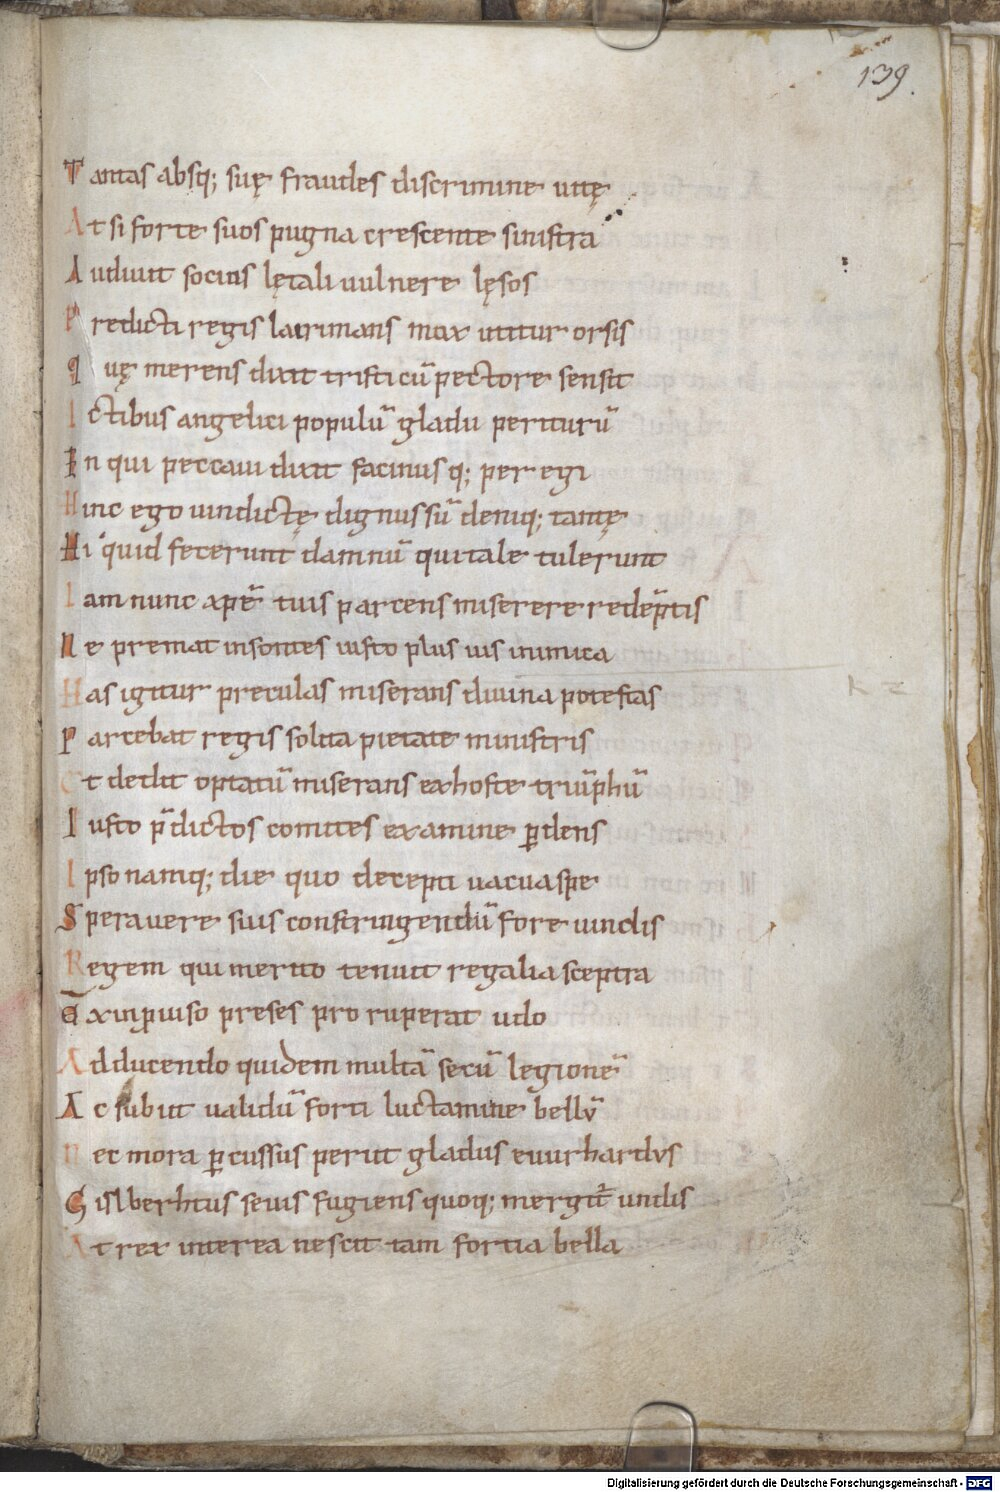 139.
Tantas absq; suę fraudes discrimine uitę
At si forte suos pugna crescente sinistra
Audiuit socius lętali uulnere lęsos
Predicti regis lacrimans mox utitur orsis
quę merens dixit tristi cū pectore sensit
Ictibus angelici populū gladii periturū
En qui peccaui dixit facinusq; peregi
Hinc ego uindictę dignus sū deniq; tantę
Hi quid fecerunt damnū qui tale tulerunt
Iam nunc xp̄e tuis parcens miserere redēptis
ne premat insontes iusto plus uis inimica
Has igitur preculas miserans diuina potestas
Parcebat regis solita pietate ministris
Et dedit optatū miserans ex hoste triūphū
Iusto p̄dictos comites examine ꝑdens
Ipso namq; die quo decepti uacua spe
Sperauere suis constringendū fore uinclis
Regem qui merito tenuit regalia sceptra
Ex inꝑuiso preses proruperat udo
Adducendo quidem multā secū legionē
Ac subiit ualidū forti luctamine bellū
nec mora ꝑcussus periit gladiis euurhardus
Gislberhtus seuis fugiens quoq; mergit̄ undis
At rex interea nescit tam fortia bella
Digitalisierung gefördert durch die Deutsche Forschungsgemeinschaft - DFG